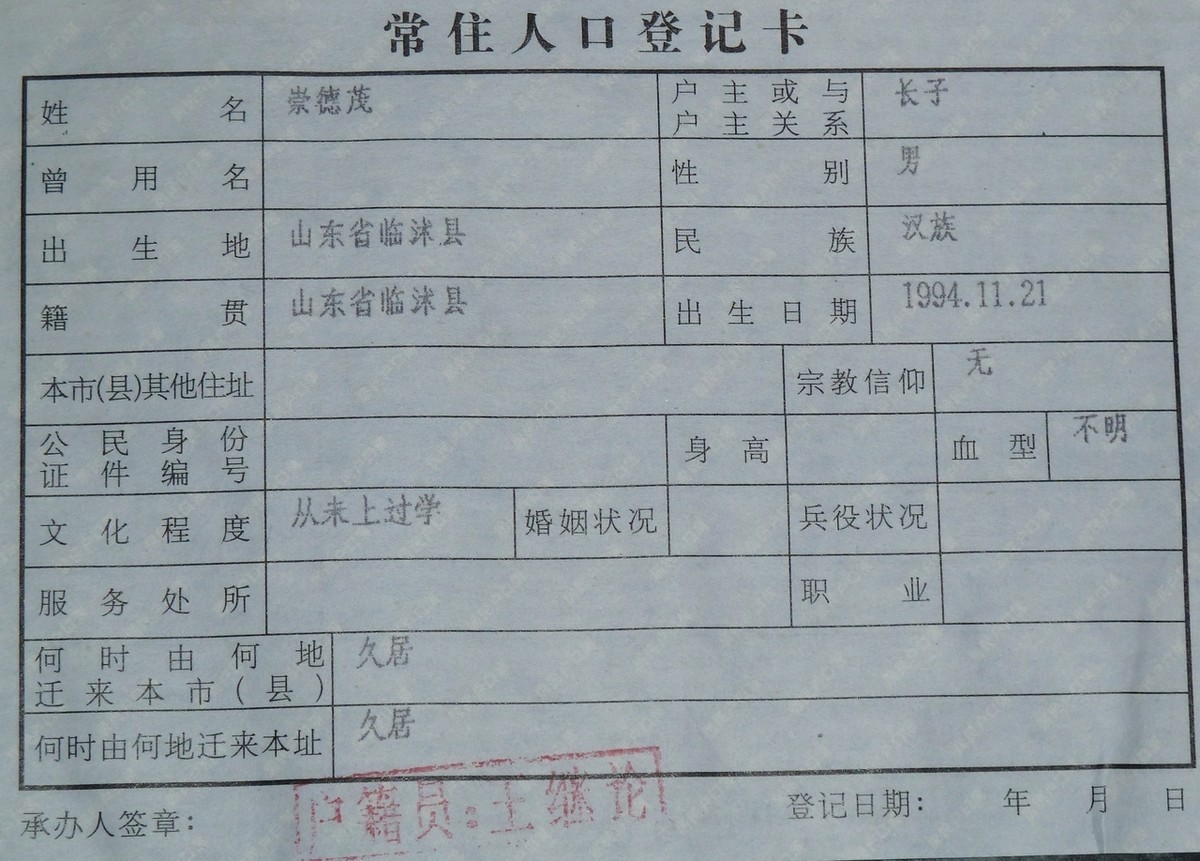 常住人口登记卡
姓名 崇德茂 户主或与户主关系 长子
曾用名 性别 男
出生地 山东省临沭县 民族 汉族
籍贯 山东省临沭县 出生日期 1994.11.21
本市(县)其他住址 宗教信仰 无
公民身份证件编号 身高 血型 不明
文化程度 从未上过学 婚姻状况 兵役状况
服务处所 职业
何时由何地迁来本市(县) 久居
何时由何地迁来本址 久居
承办人签章: 户籍员:王继论 登记日期: 年 月 日